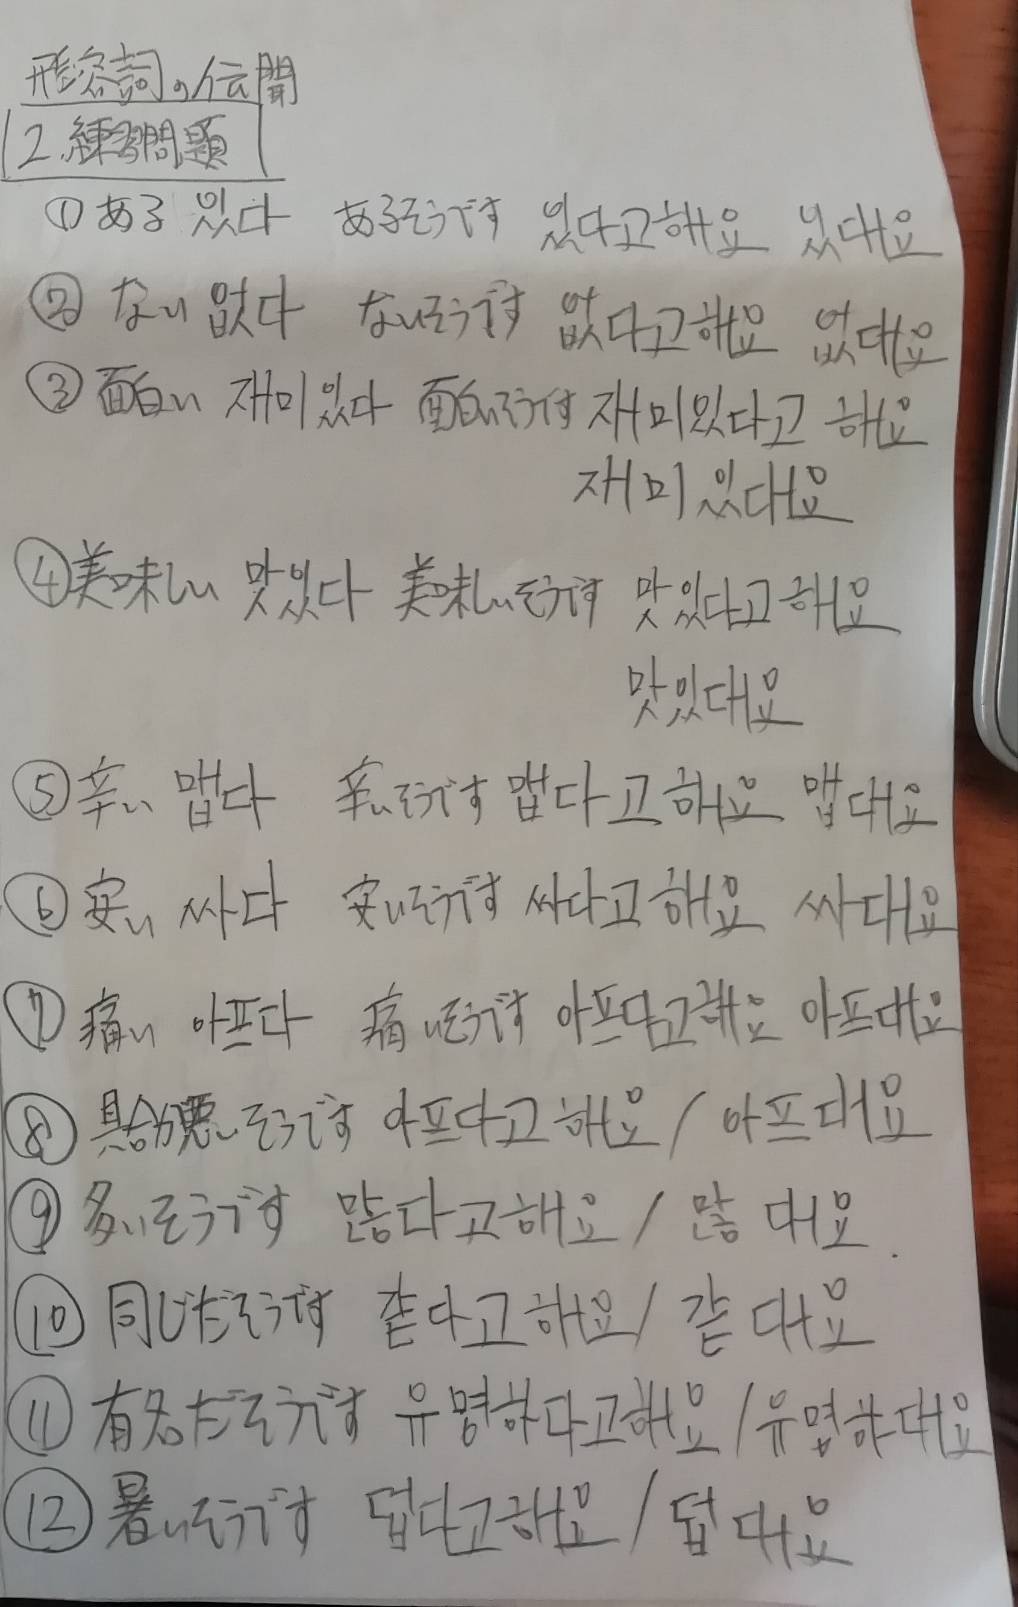 形容詞の伝聞
2.練習問題
① ある 있다 あるそうです 있다고해요 있대요
② ない 없다 ないそうです 없다고해요 없대요
③ 面白い 재미있다 面白いそうです 재미있다고 해요
재미있대요
④ 美味しい 맛있다 美味しいそうです 맛있다고해요
맛있대요
⑤ 辛い 맵다 辛いそうです 맵다고해요 맵대요
⑥ 安い 싸다 安いそうです 싸다고해요 싸대요
⑦ 痛い 아프다 痛いそうです 아프다고해요 아프대요
⑧ 具合が悪いそうです 아프다고해요 / 아프대요
⑨ 多いそうです 많다고해요 / 많대요.
⑩ 同じだそうです 같다고해요 / 같대요
⑪ 有名だそうです 유명하다고해요 / 유명하대요
⑫ 暑いそうです 덥다고해요 / 덥대요